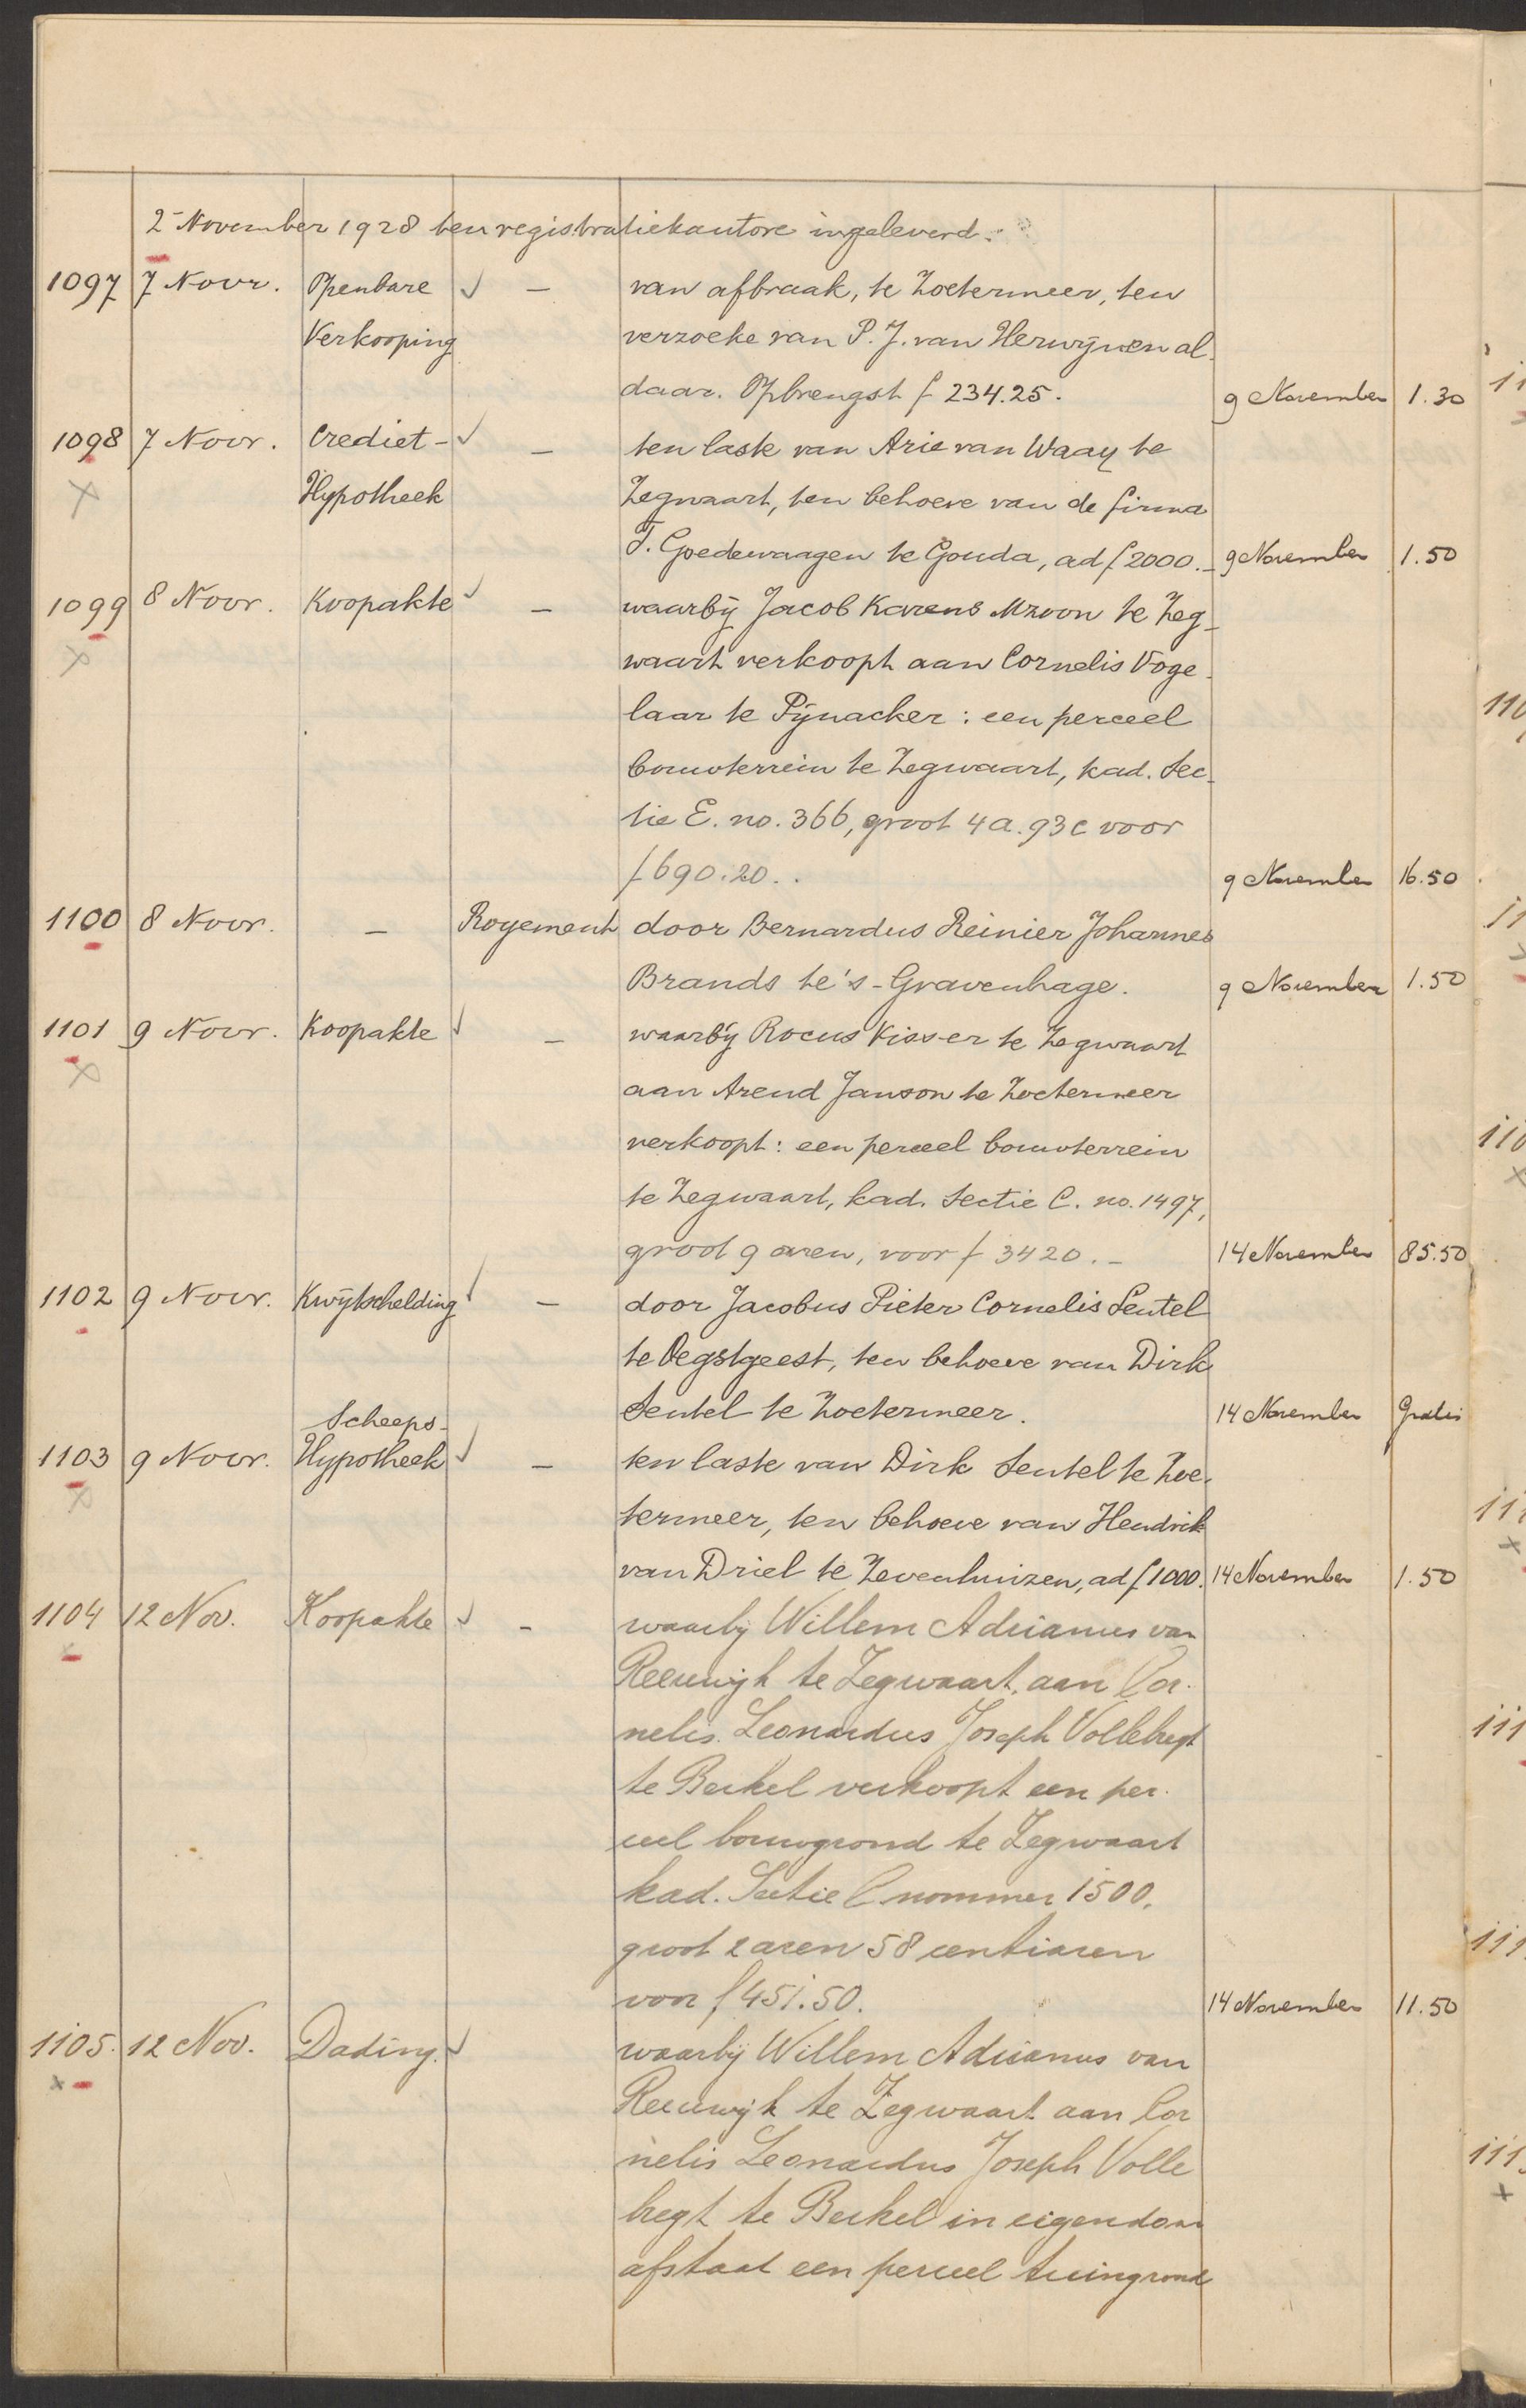 2 November 1928 ten registratiekantore ingeleverd.
1097 7 Novr. Openbare — van afbraak, te Zoetermeer, ten
Verkooping verzoeke van P. J. van Herwijnen al-
daar. Opbrengst f 234.25. 9 November 1.30
1098 7 Novr. Crediet- — ten laste van Arie van Waaij te
Hypotheek Zegwaart, ten behoeve van de firma
T. Goedewaagen te Gouda, ad f 2000.- 9 November 1.50
1099 8 Novr. Koopakte — waarbij Jacob Karens Mzoon te Zeg-
waart verkoopt aan Cornelis Voge-
laar te Pijnacker: een perceel
bouwterrein te Zegwaart, kad. Sec-
tie E. no. 366, groot 4 a. 93 c voor
f 690.20. 9 November 16.50
1100 8 Novr. — Royement door Bernardus Reinier Johannes
Brands te 's-Gravenhage. 9 November 1.50
1101 9 Novr. Koopakte — waarbij Rocus Visser te Zegwaart
aan Arend Janson te Zoetermeer
verkoopt: een perceel bouwterrein
te Zegwaart, kad. Sectie C. no. 1497,
groot 9 aren, voor f 3420.- 14 November 85.50
1102 9 Novr. Kwijtschelding — door Jacobus Pieter Cornelis Sentel
te Oegstgeest, ten behoeve van Dirk
Sentel te Zoetermeer. 14 November Gratis
Scheeps-
1103 9 Novr. Hypotheek — ten laste van Dirk Sentel te Zoe-
termeer, ten behoeve van Hendrik
van Driel te Zevenhuizen, ad f 1000. 14 November 1.50
1104 12 Nov. Koopakte - waarbij Willem Adrianus van
Reeuwijk te Zegwaart, aan Cor-
nelis Leonardus Joseph Vollebregt
te Berkel verkoopt een per-
ceel bouwgrond te Zegwaart
kad. Sectie C nommer 1500,
groot 2 aren 58 centiaren
voor f 451.50. 14 November 11.50
1105. 12 Nov. Dading. waarbij Willem Adrianus van
Reeuwijk te Zegwaart aan Cor
nelis Leonardus Joseph Volle
bregt te Berkel in eigendom
afstaat een perceel tuingrond